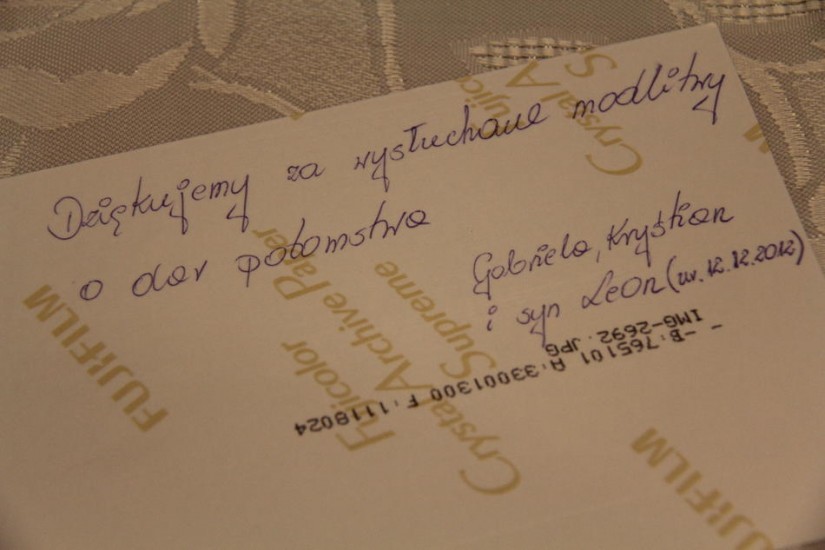 Dziękujemy za wysłuchane modlitwy
o dar potomstwa
Gabriela, Krystian
i syn Leon (ur. 12.12.2012)
IMG-2692.JPG
-B:765101 A:33001300 F:1118024
FUJIFILM
Fujicolor
Crystal Archive Paper
Supreme
Crystal A
S
FUJIFILM